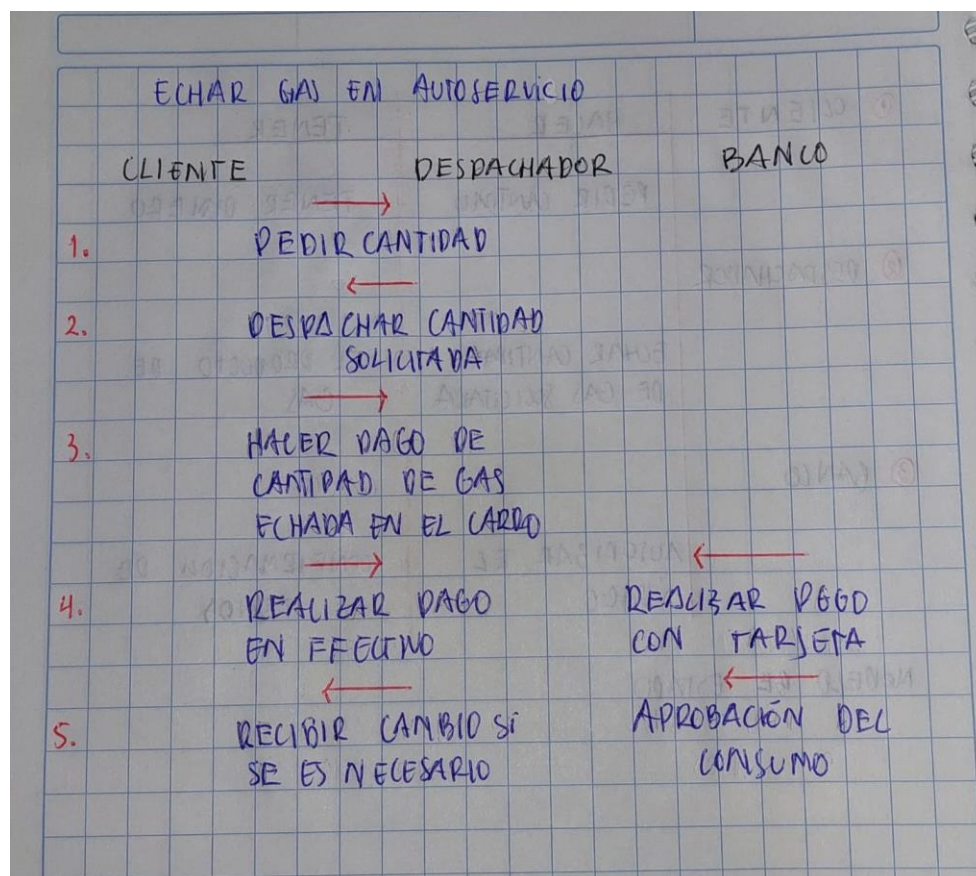 ECHAR GAS EN AUTOSERVICIO
CLIENTE DESPACHADOR BANCO
1. PEDIR CANTIDAD
2. DESPACHAR CANTIDAD
SOLICITADA
3. HACER PAGO DE
CANTIDAD DE GAS
ECHADA EN EL CARRO
4. REALIZAR PAGO REALIZAR PAGO
EN EFECTIVO CON TARJETA
5. RECIBIR CAMBIO SI APROBACIÓN DEL
SE ES NECESARIO CONSUMO